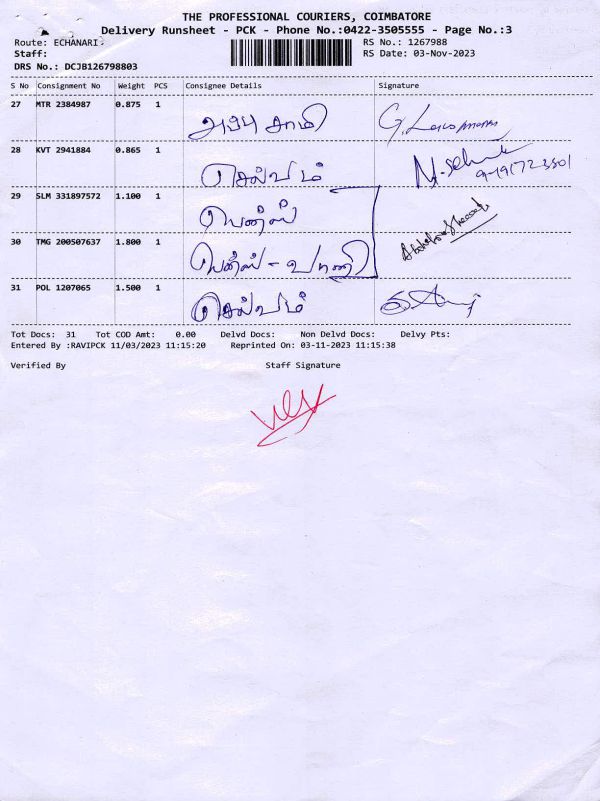 THE PROFESSIONAL COURIERS, COIMBATORE
Delivery Runsheet - PCK - Phone No.:0422-3505555 - Page No.:3
Route: ECHANARI
RS No.: 1267988
Staff:
RS Date: 03-Nov-2023
DRS No.: DCJB126798803
S No Consignment No Weight PCS Consignee Details Signature
27 MTR 2384987 0.875 1 அப்பு சாமி
28 KVT 2941884 0.865 1 செல்வம்
29 SLM 331897572 1.100 1
30 TMG 200507637 1.800 1
31 POL 1207065 1.500 1 செல்வம்
Tot Docs: 31 Tot COD Amt: 0.00 Delvd Docs: Non Delvd Docs: Delvy Pts:
Entered By :RAVIPCK 11/03/2023 11:15:20 Reprinted On: 03-11-2023 11:15:38
Verified By Staff Signature